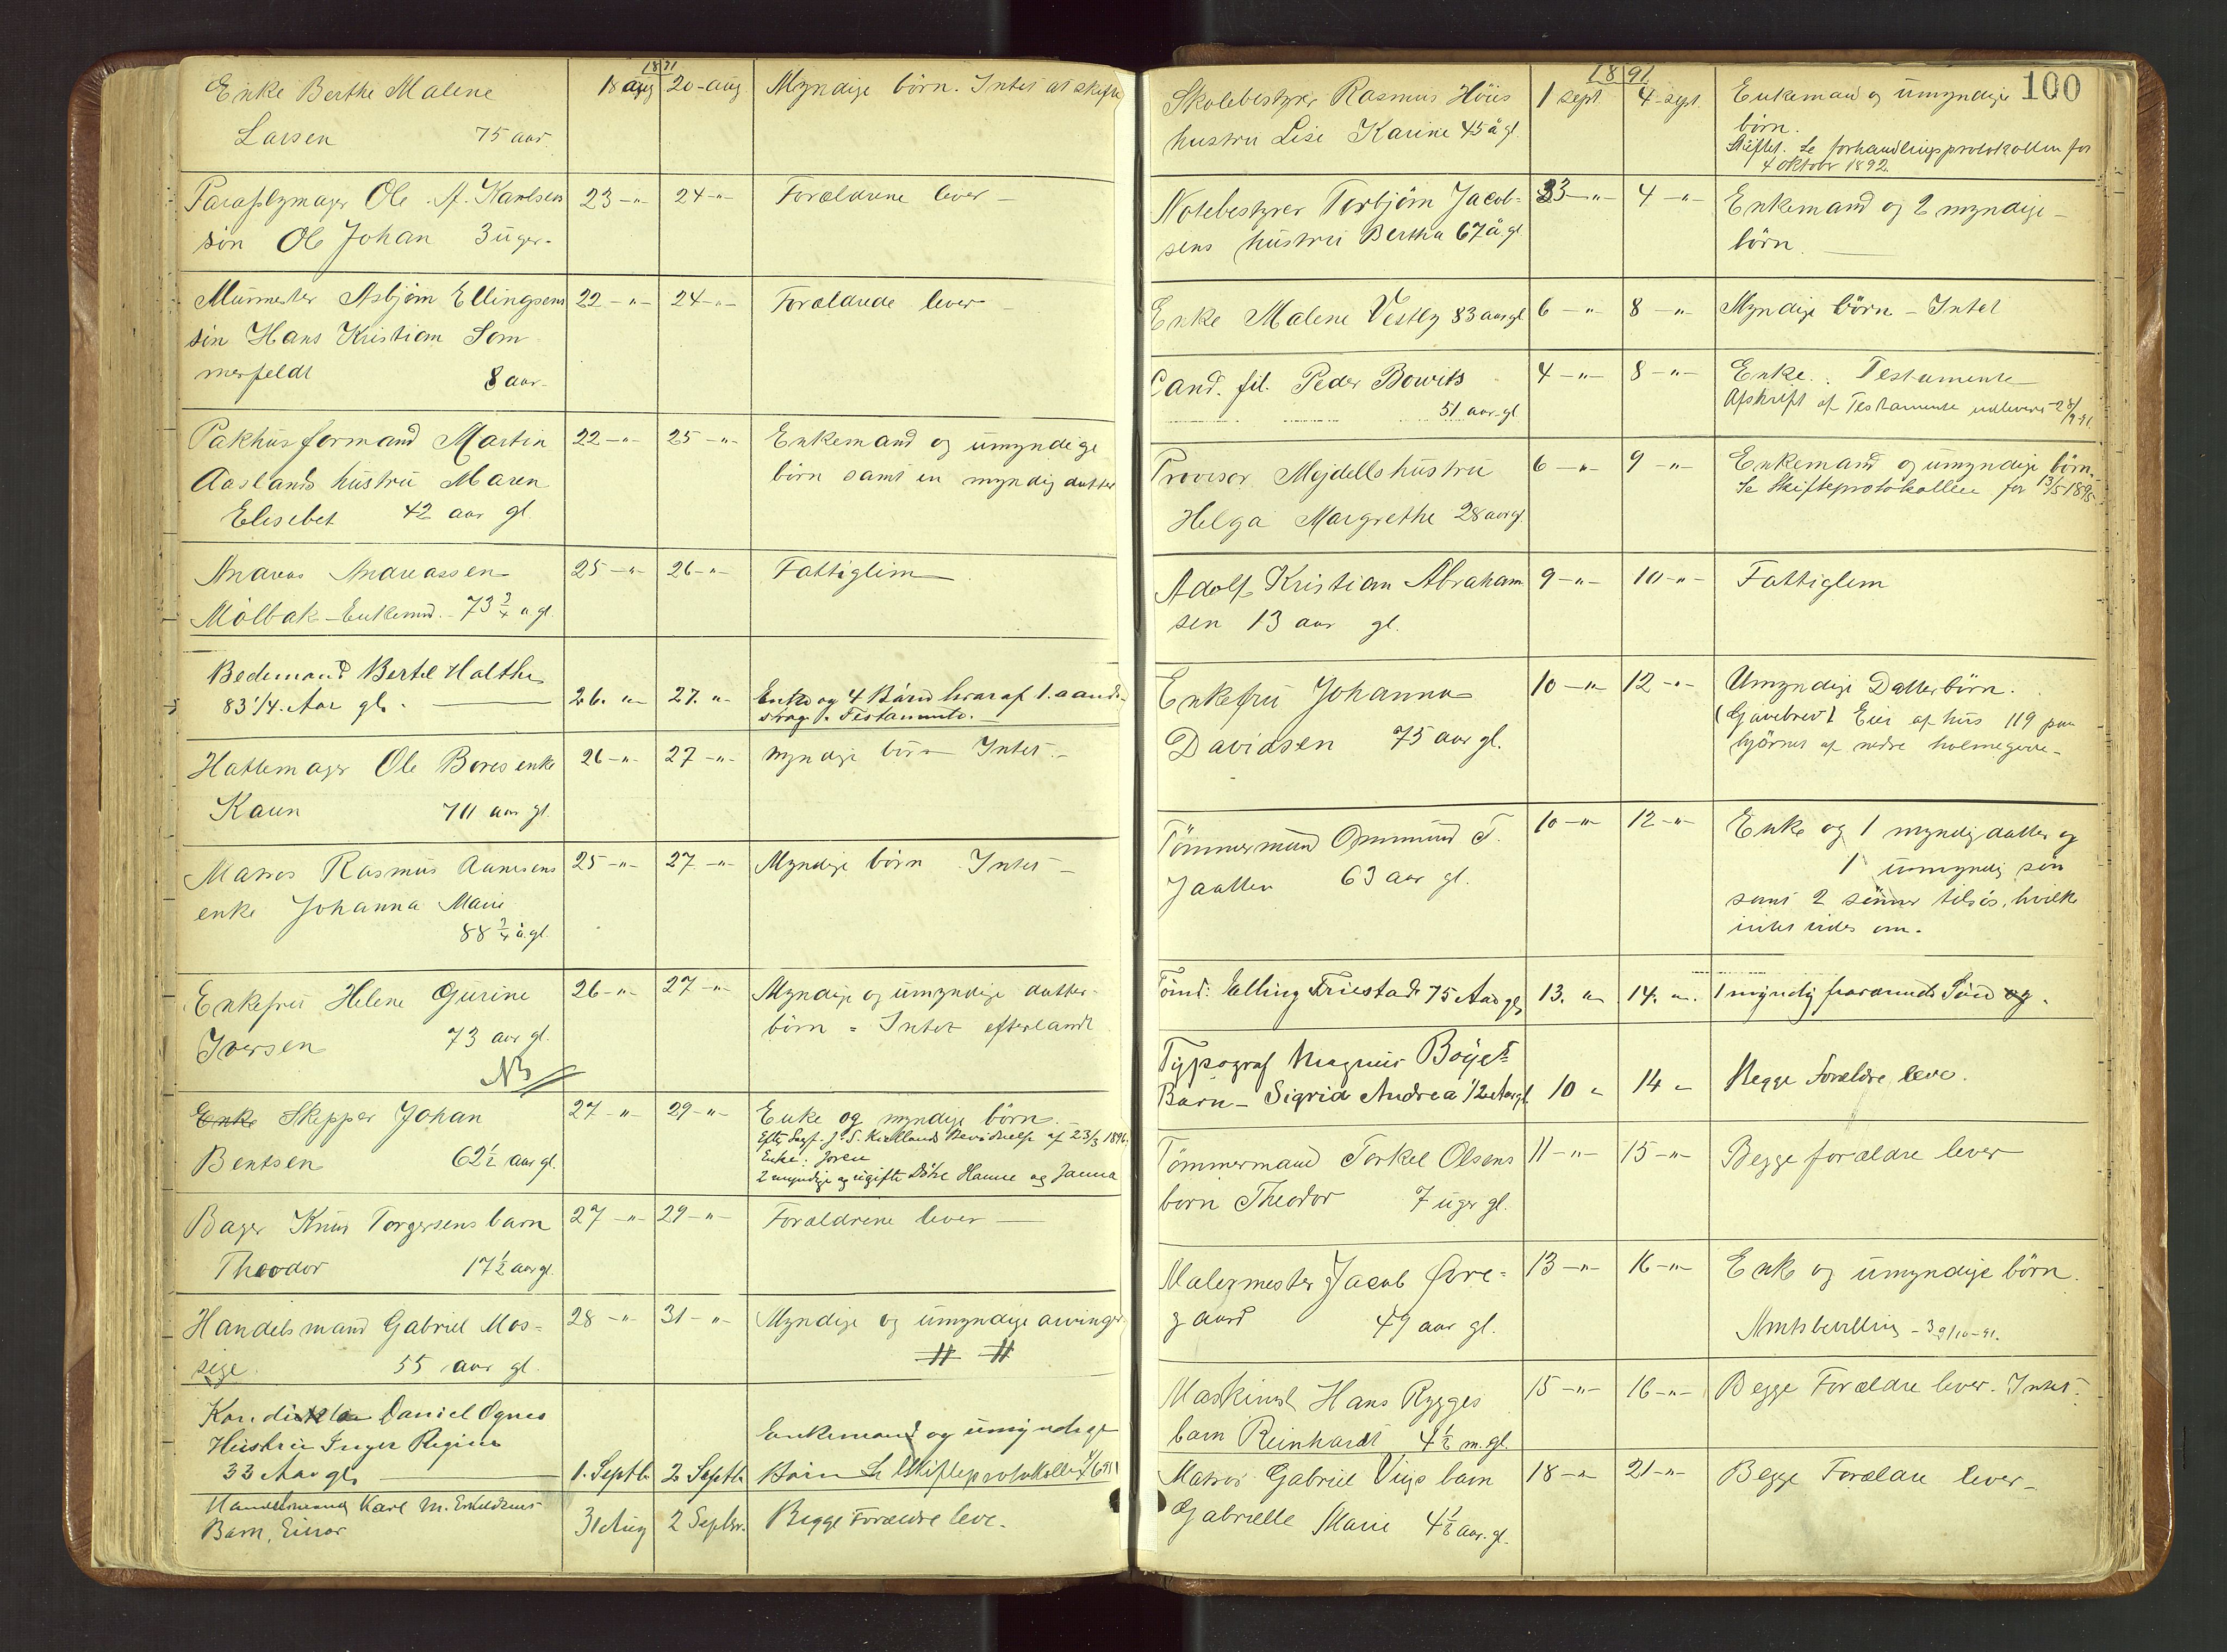 18 91
Enke Berthe Malene 18 aug 20-aug Myndige børn. Intet at skifte
Larsen 75 aar.
Paraplymager Ole A. Karlsen 23 -"- 24 -"- Forældrene lever -
søn Ole Johan 3 uger -
Murmester Asbjørn Ellingsens 22 -"- 24 -"- Forældrede lever -
søn Hans Kristian Som
merfeldt 8 aar -
Pakhusformand Martin 22 -"- 25 -"- Enkemand og umyndige
Aaslands hustru Maren børn samt en myndig datter
Elisebet 42 aar gl
Andreas Andreassen 25 -"- 26 -"- Fattiglem
Mølbak - Enkemd. - 73 3/4 a gl.
Bedemand Bertel Halth
83 1/4. Aar gl. 26. " 27. " Enke og 4 Børn hvoraf 1.
Testamente. -
Hattemager Ole Bores enke 26 -"- 27 -"- myndige børn Intet -
Karen 70 aar gl.
Matros Rasmus Aanesens 25 -"- 27 -"- Myndige børn Intet -
enke Johanna Marie
88 3/4 å. gl.
Enkefru Helene Gurine 26 -"- 27 -"- Myndige og umyndige datter-
Iversen 73 aar gl. børn = Intet efterladt
NB
Enke Skipper Johan 27 -"- 29 -"- Enke og myndige børn. -
Bentsen 62 1/2 aar gl. Efter Sagf. J. S. Kiellands Bevidnelse af 23/3 1896.
Enke: Joren
2 myndige og ugifte Døtre Hanne og Janna
Bager Knud Torgersens barn 27 -"- 29 -"- Forældrene lever -
Theodor 17 1/2 aar gl.
Handelsmand Gabriel Mos= 28 -"- 31 -"- Myndige og umyndige arvinger
sige 55 aar gl.
Konditor Daniel Ognes Enkemand og umyndige
Hustru Inger Regine
33 Aar gl. 1. Septb. 2 Septb. Børn Se Skifteprotokollen
Handelsmand Karl M.
Barn, Einar 31 Aug 2 Septbr. Begge Forældre leve.
100
18 91
Skolebestyrer Rasmus Høiis 1 sept. 4 sept. Enkemand og umyndige
hustru Lise Karine 45 å gl. børn.
Skiftet. Se forhandlingsprotokollen for
4 oktober 1892.
Notebestyrer Torbjørn Jacob= 3 -"- 4 -"- Enkemand og 2 myndige -
sens hustru Bertha 67 å. gl. børn.
Enke Malene Vestly 83 aar gl 6 -"- 8 -"- Myndige børn - Intet
Cand. fil. Peder Bowitz 4 -"- 8 -"- Enke. Testamente
51 aar gl Afskrift af Testamente udleveret 28/9 91
Provisor Mejdells hustru 6 -"- 9 -"- Enkemand og umyndige børn.
Helga Margrethe 28 aar gl. Se Skifteprotokollen for 13/5 1895
Adolf Kristian Abraham 9 -"- 10 -"- Fattiglem
sen 13 aar gl.
Enkefru Johanna 10 -"- 12 -"- Umyndige Datterbørn.
Davidsen 75 aar gl. (Gavebrev) Eier af hus 119 paa
hjørnet af nedre holmegade -
Tømmermand Ommund T. 10 -"- 12 -"- Enke og 1 myndig datter og
Jaatten 63 aar gl. 1 umyndig søn
samt 2 sønner tilsøs, hvilke
intet vides om.
Tømd. Elling Friestad 75 Aar gl. 13. " 14. " 1 myndig fraværende Sønd og.
Typograf Magnus Bøye's
Barn - Sigrid Andrea 1/2 Aar gl. 10 " 14 " Begge Forældre leve.
Tømmermand Torkel Olsens 11 -"- 15 -"- Begge forældre lever
barn Theodor 7 uger gl.
Malermester Jacob Øvre= 13 -"- 16 -"- Enke og umyndige børn.
gaard 49 aar gl. Amtsbevilling -
Maskinist Hans Rygges 15 -"- 16 -"- Begge Forældre lever. Intet.
barn Reinhardt 4 1/2 m. gl.
Matros Gabriel Vigs barn 18 -"- 21 -"- Begge Forældre lever -
Gabrielle Marie 4 1/2 aar. gl.